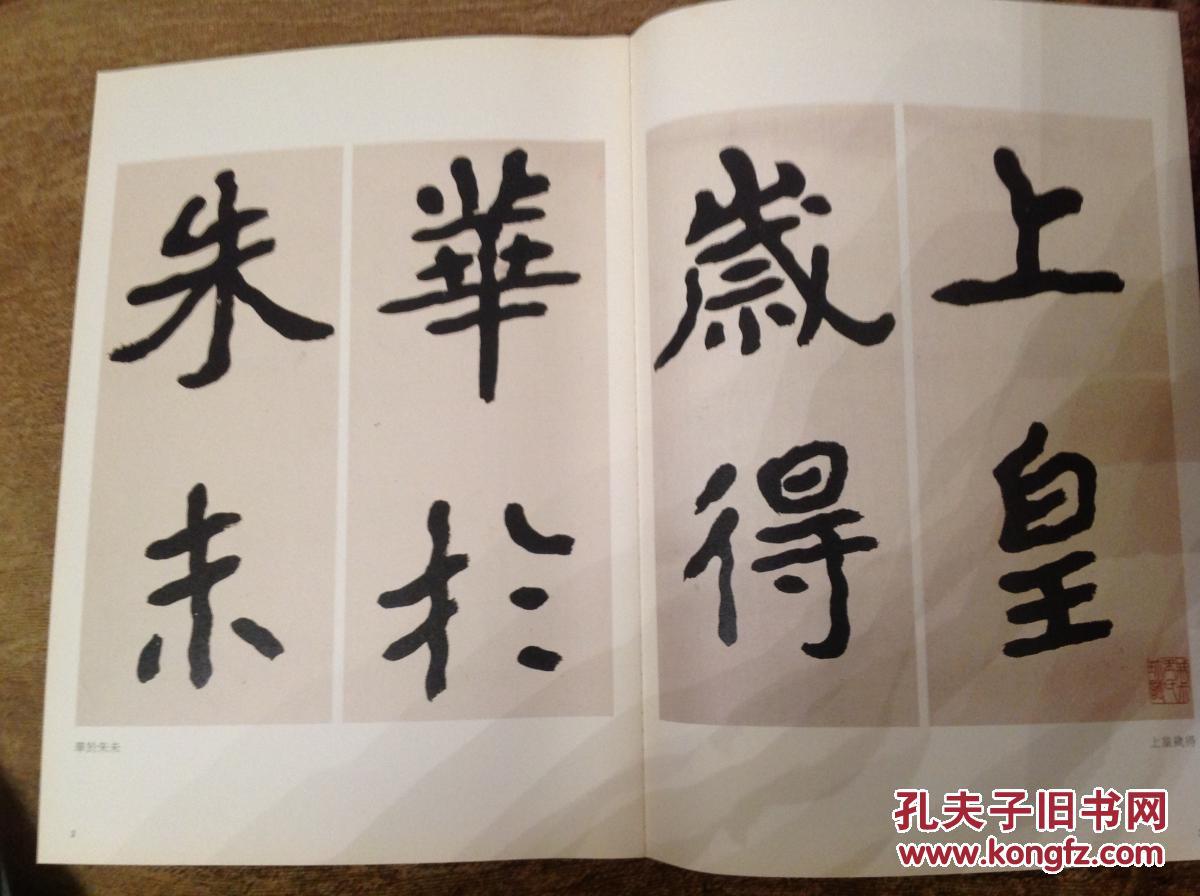 上皇
歲得
華於
朱未
上皇歲得
華於朱未
2
孔夫子旧书网
www.kongfz.com